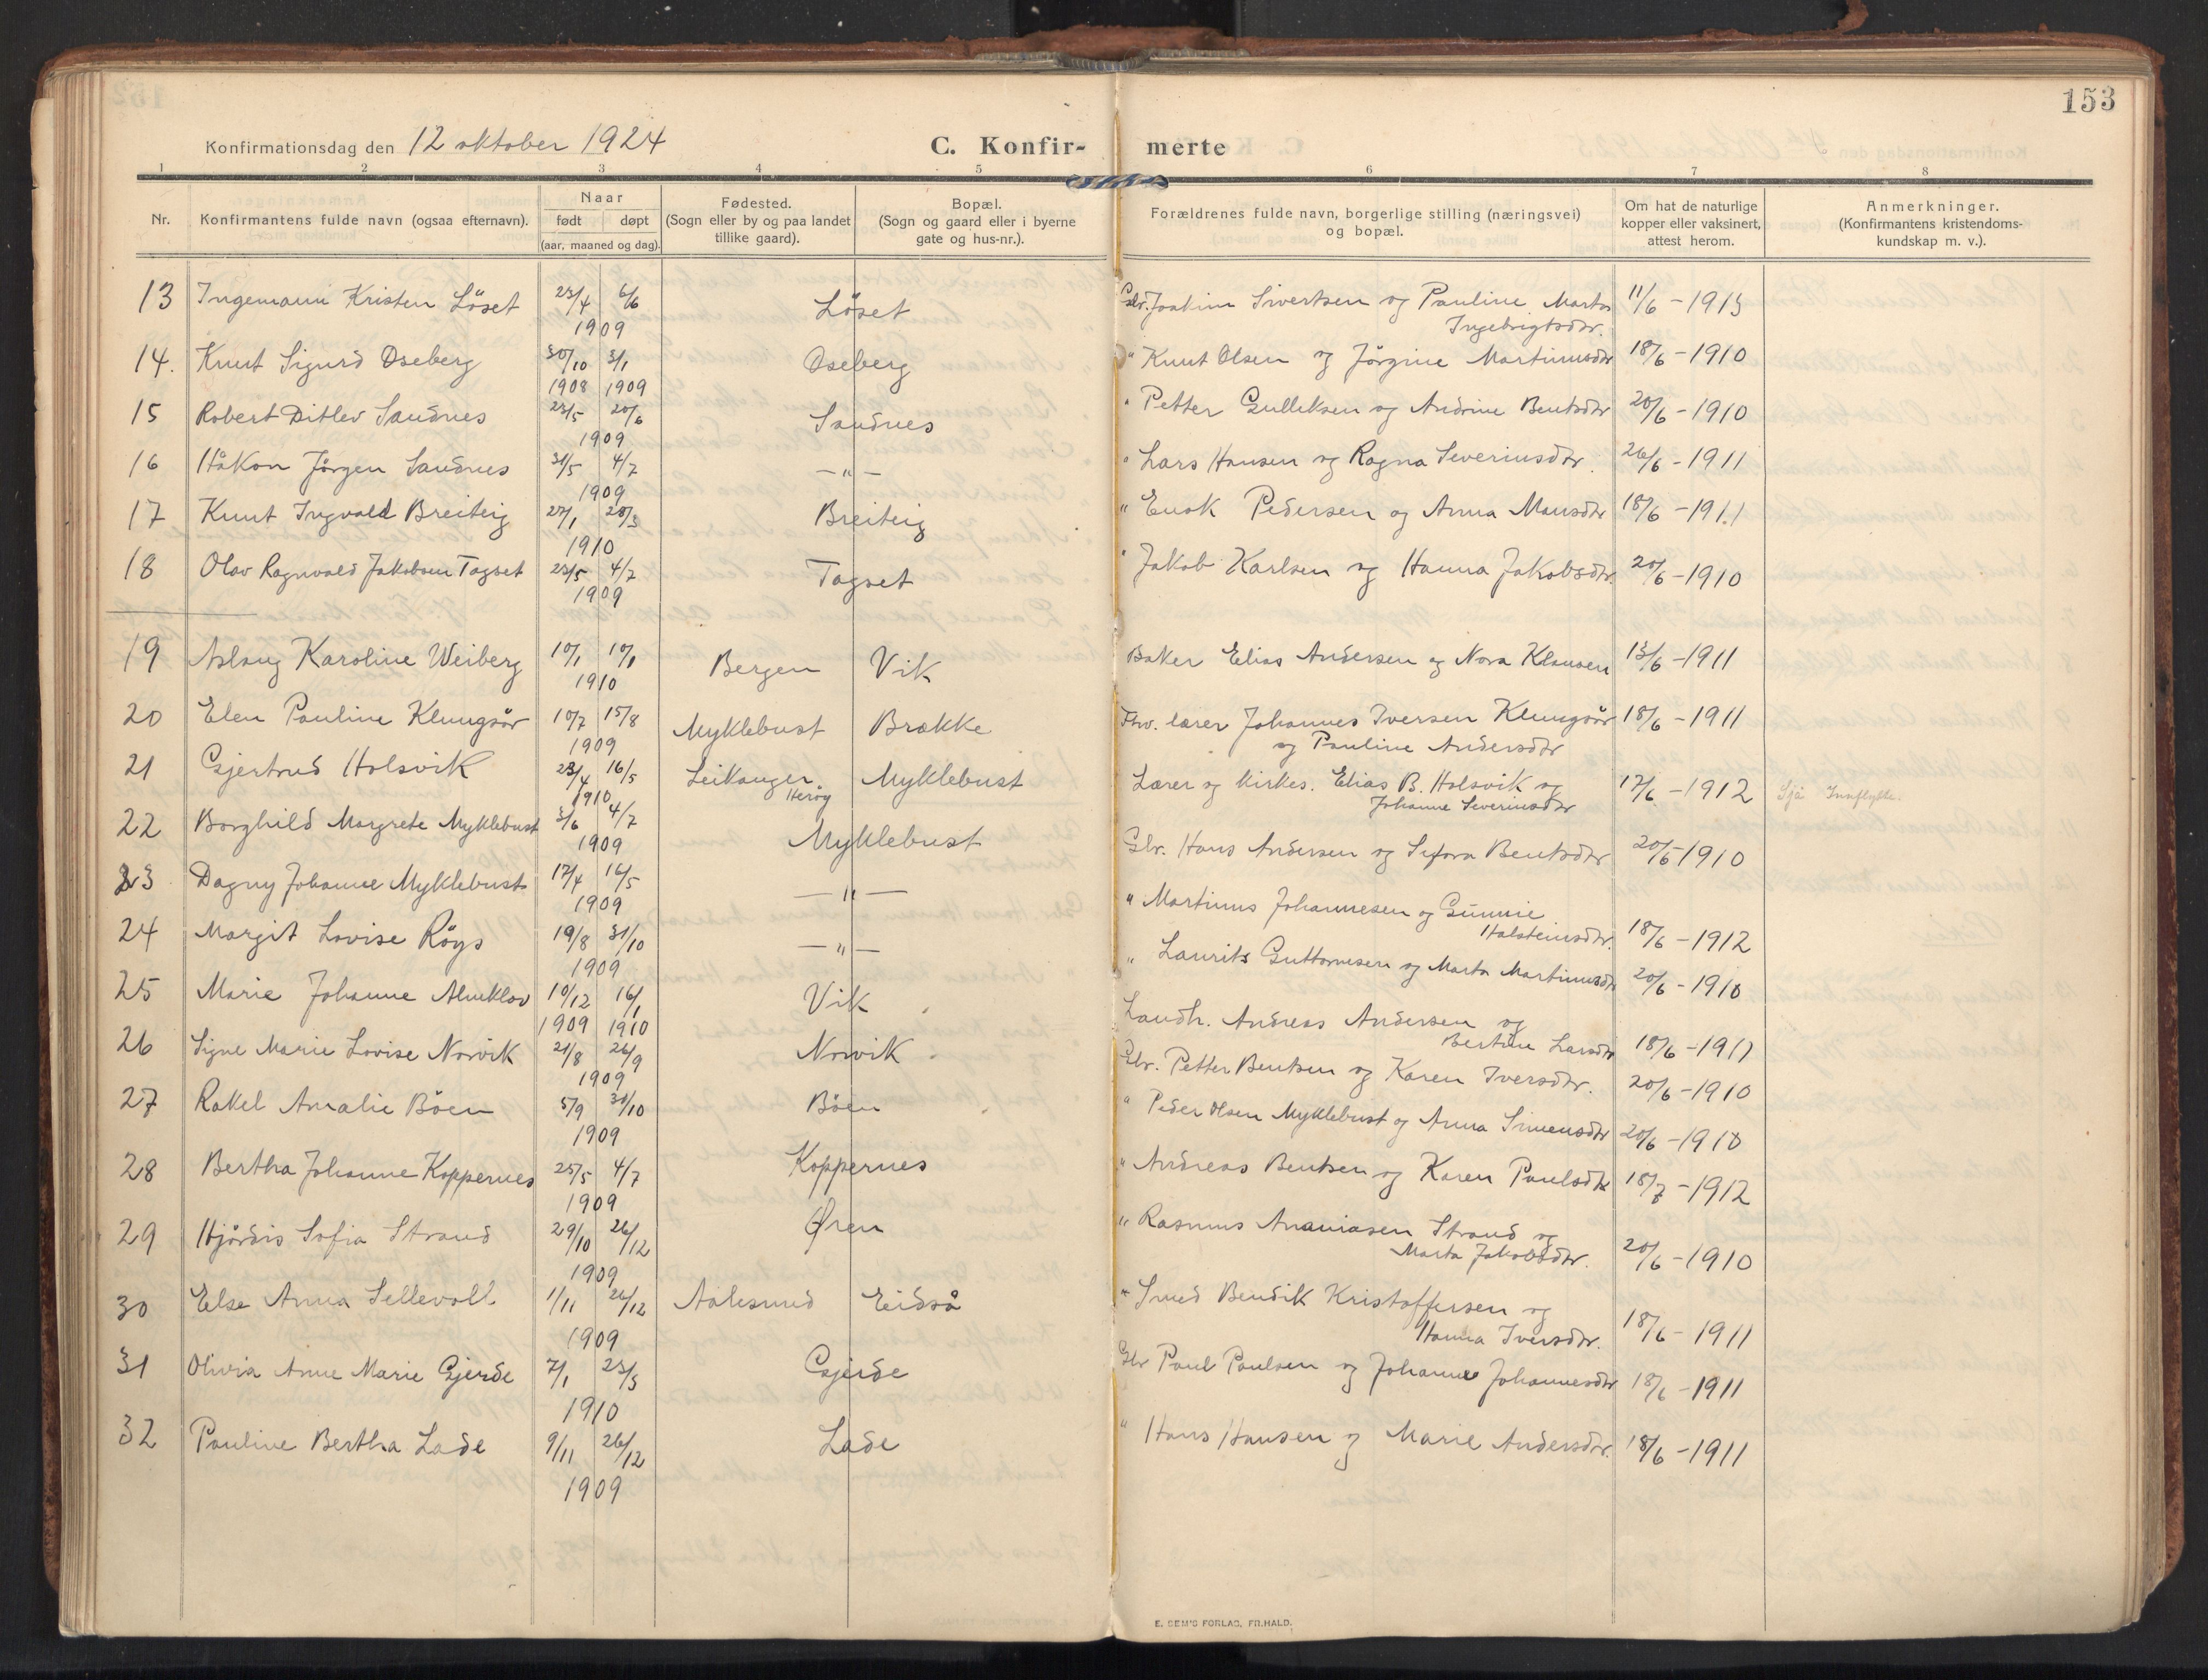 153
Konfirmationsdag den 12 oktober 1924
C. Konfir- merte
1 2 3 4 5 6 7 8
Nr. Konfirmantens fulde navn (ogsaa efternavn). Naar født døpt (aar, maaned og dag). Fødested. (Sogn eller by og paa landet tillike gaard). Bopæl. (Sogn og gaard eller i byerne gate og hus-nr.). Forældrenes fulde navn, borgerlige stilling (næringsvei) og bopæl. Om hat de naturlige kopper eller vaksinert, attest herom. Anmerkninger. (Konfirmantens kristendomskundskap m. v.).
13 Ingemann Kristen Löset 23/4 6/6 1909 Löset Gbr. Joakim Sivertsen og Pauline Marta Ingebrigtsdtr. 11/6 - 1913
14. Knut Sigurd Oseberg 30/10 3/1 1908 1909 Oseberg " Knut Olsen og Jörgine Martinusdtr 18/6 - 1910
15 Robert Ditlev Sandnes 23/5 20/6 1909 Sandnes " Petter Gulliksen og Andrine Bentsdtr 20/6 - 1910
16 Håkon Jörgen Sandnes 31/5 4/7 1909 - " - " Lars Hansen og Ragna Severinsdtr. 26/6 - 1911
17 Knut Ingvald Breiteig 27/1 28/3 1910 Breiteig " Enok Pedersen og Anna Monsdtr 18/6 - 1911
18 Olav Ragnvald Jakobsen Tagset 23/5 4/7 1909 Tagset " Jakob Karlsen og Hanna Jakobsdtr. 20/6 - 1910
19 Aslaug Karoline Weiberg 10/1 10/1 1910 Bergen Vik Baker Elias Andersen og Nora Klausen 13/6 - 1911
20 Elen Pauline Klungsör 10/7 15/8 1909 Myklebust Brække Fhv. lærer Johannes Iversen Klungsör og Pauline Andersdtr 18/6 - 1911
21 Gjertrud Holsvik 23/4 16/5 1910 Leikanger Heröy Myklebust Lærer og kirkes. Elias B. Holsvik og Johanne Severinsdtr 17/6 - 1912 Sjå Innflytte.
22 Borghild Margrete Myklebust 3/6 4/7 1909 Myklebust Gbr. Hans Andersen og Sefora Bentsdtr 20/6 1910
23 Dagny Johanne Myklebust 17/4 16/5 1909 - " - " Martinus Johannesen og Gunnie Holsteinsdtr. 18/6 - 1912
24 Margit Lovise Röys 19/8 31/10 1909 - " - " Laurits Guttormsen og Marta Martinusdtr 20/6 - 1910
25 Marie Johanne Almklov 10/12 16/1 1909 1910 Vik Landh. Andreas Andersen og Bertine Larsdtr 18/6 - 1911
26 Signe Marie Lovise Norvik 21/8 26/9 1909 Norvik Gbr. Petter Bentsen og Karen Iversdtr. 20/6 - 1910
27 Rakel Amalie Böen 5/9 31/10 1909 Böen " Peder Olsen Myklebust og Anna Simensdtr 20/6 - 1910
28 Bertha Johanne Koppernes 25/5 4/7 1909 Koppernes " Andreas Bentsen og Karen Paulsdtr 18/7 - 1912
29 Hjördis Sofia Strand 29/10 26/12 1909 Øren " Rasmus Ananiasen Strand og Marta Jakobsdtr. 20/6 - 1910
30 Else Anna Sellevoll 1/11 26/12 1909 Aalesund Eidså " Smed Bendik Kristoffersen og Hanna Iversdtr. 18/6 - 1911
31 Olivia Anne Marie Gjerde 7/1 23/3 1910 Gjerde Gbr Paul Paulsen og Johanne Johannesdtr 18/6 - 1911
32 Pauline Bertha Lade 9/11 26/12 1909 Lade " Hans Hansen og Marie Andersdtr. 18/6 - 1911
E. SEM'S FORLAG, FR.HALD.